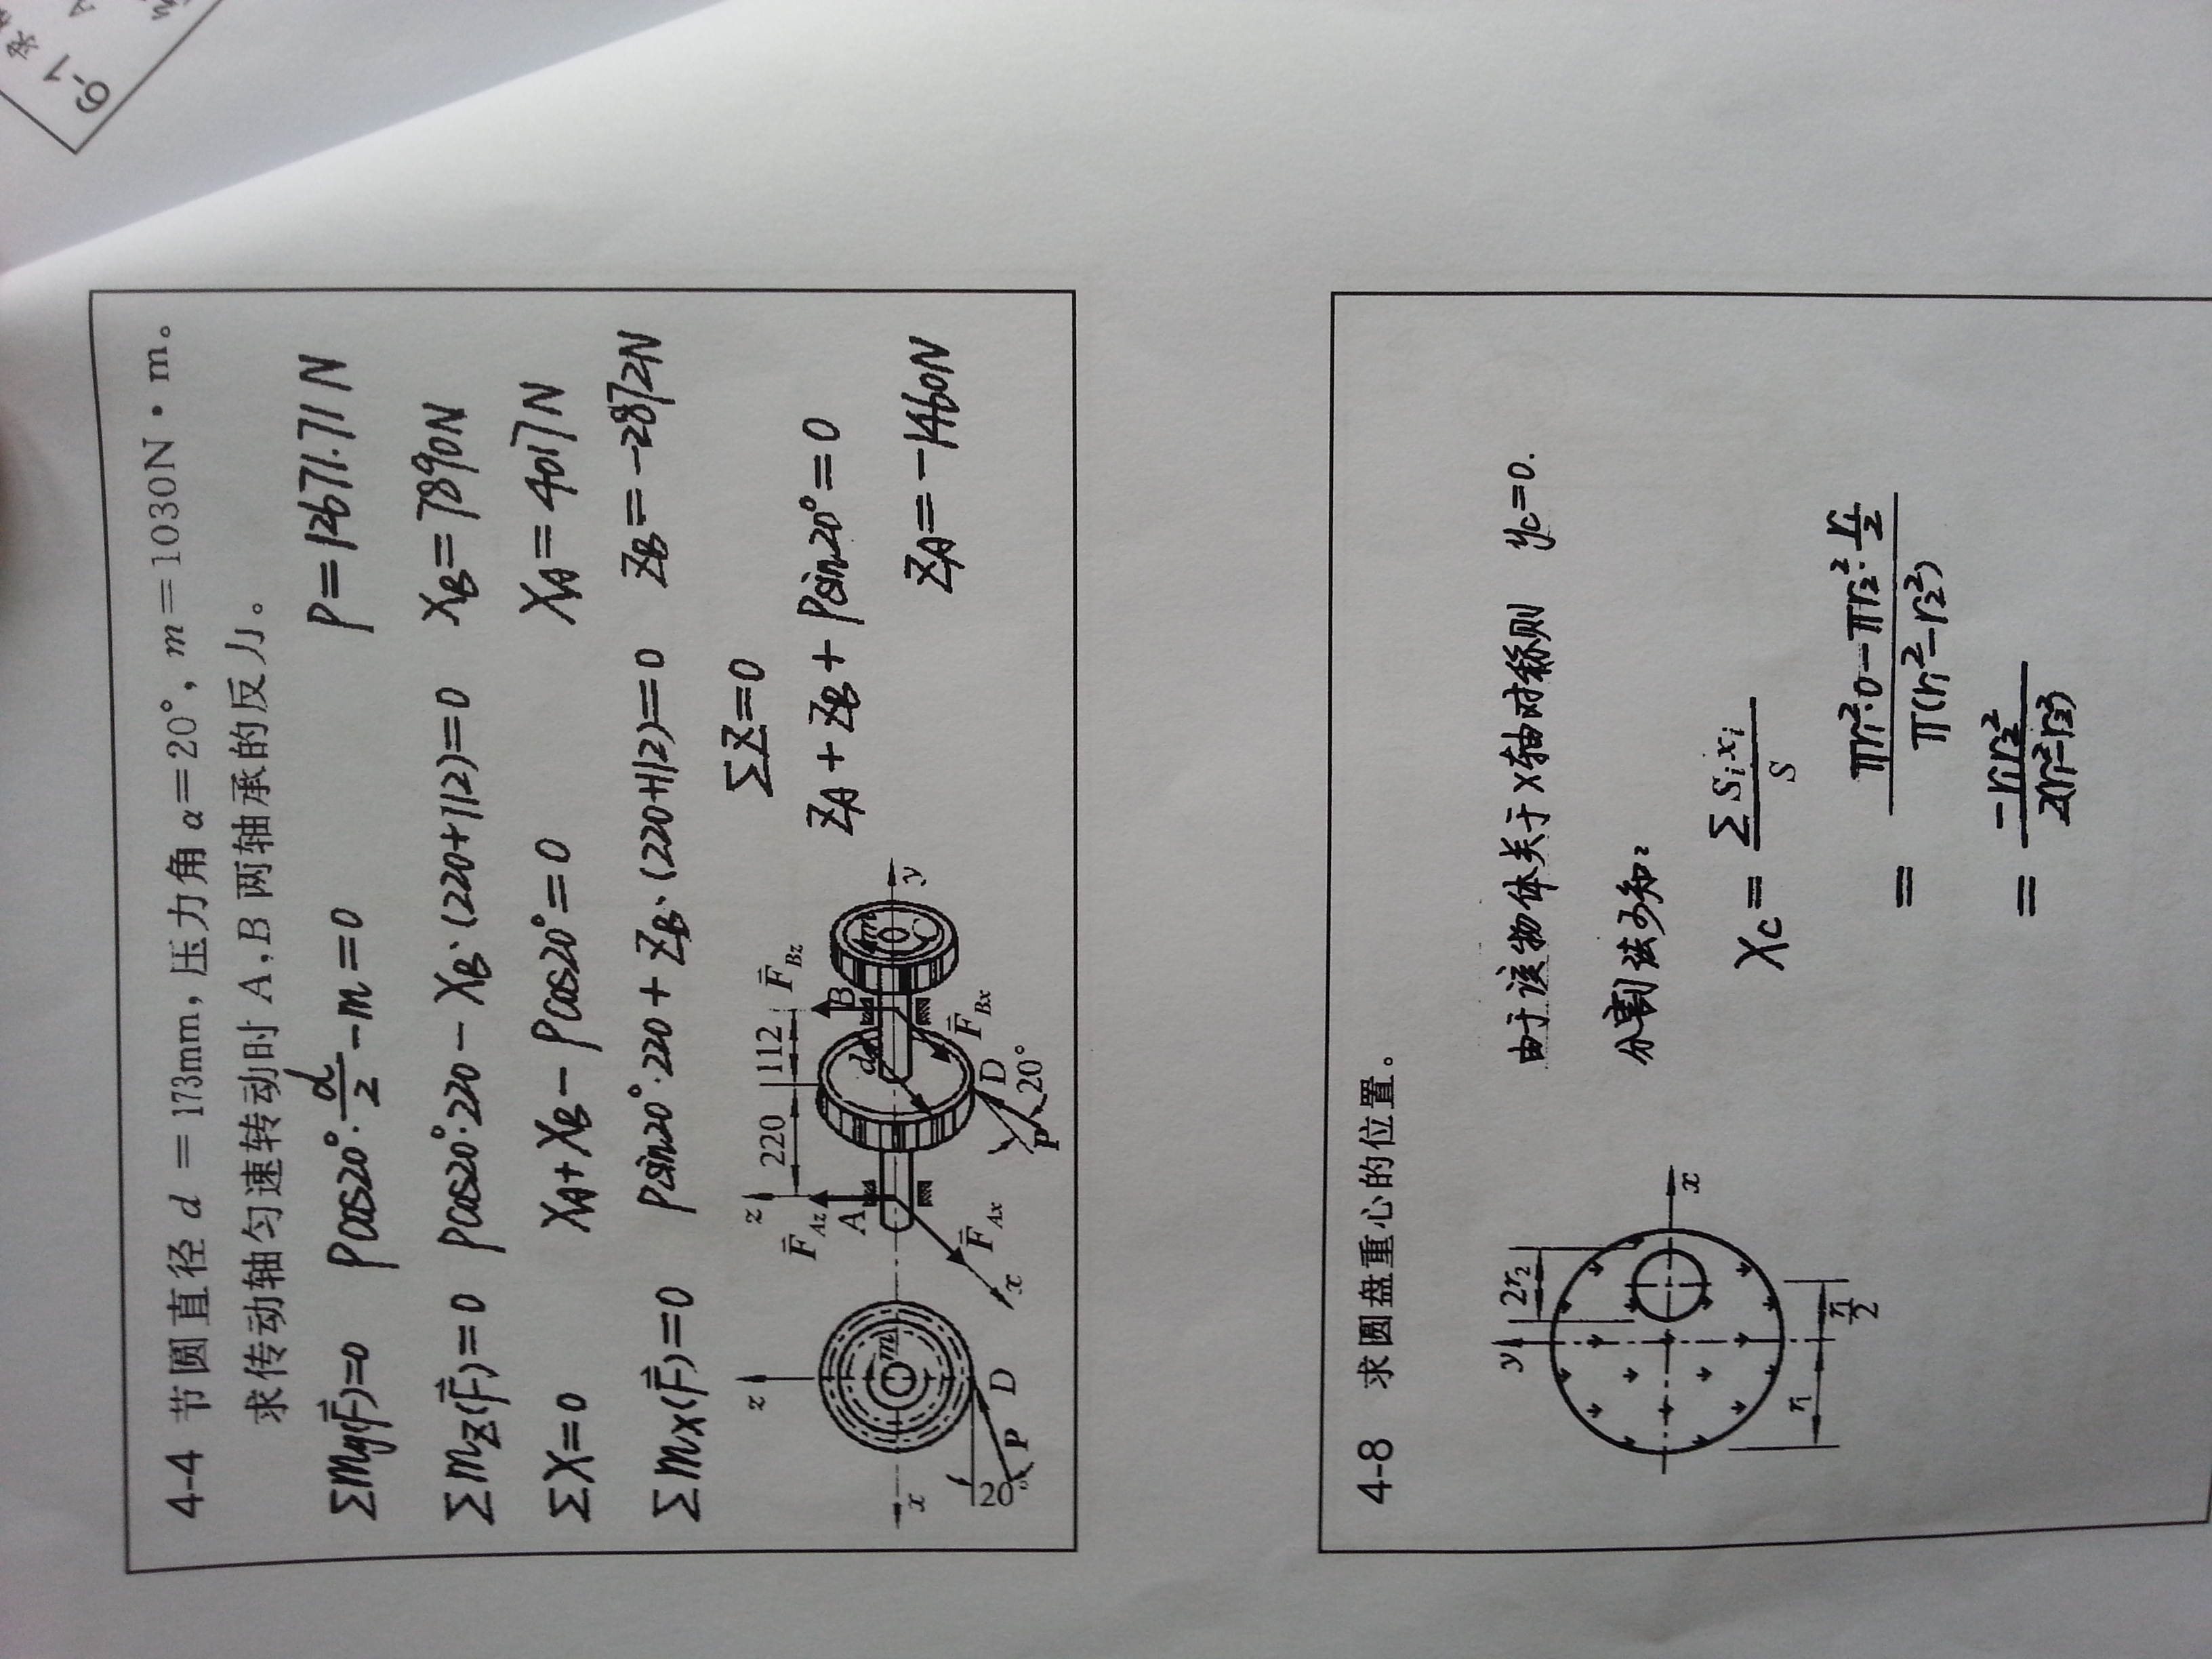 4-4 节圆直径 d = 173mm, 压力角 α=20°, m=1030N·m。
求传动轴匀速转动时 A,B 两轴承的反力。
Σmy(F̄)=0 Pcos20°·d/2-m=0 P=12671.71N
Σmz(F̄)=0 Pcos20°·220-XB·(220+112)=0 XB=7890N
ΣX=0 XA+XB-Pcos20°=0 XA=4017N
Σmx(F̄)=0 Psin20°·220+ZB·(220+112)=0 ZB=-2872N
ΣZ=0
ZA+ZB+Psin20°=0
ZA=-1460N
z
x
m
D
P
20°
z
220
112
F̄Az
F̄Bz
A
B
d
m
C
y
F̄Ax
F̄Bx
x
D
P
20°
4-8 求圆盘重心的位置。
由于该物体关于X轴对称则 yc=0.
分割法可知:
Xc=ΣSixi/S
=πr1²·0-πr2²·r1/2/π(r1²-r2²)
=-r1r2²/2(r1²-r2²)
y
2r2
x
r1
r1/2
6-1